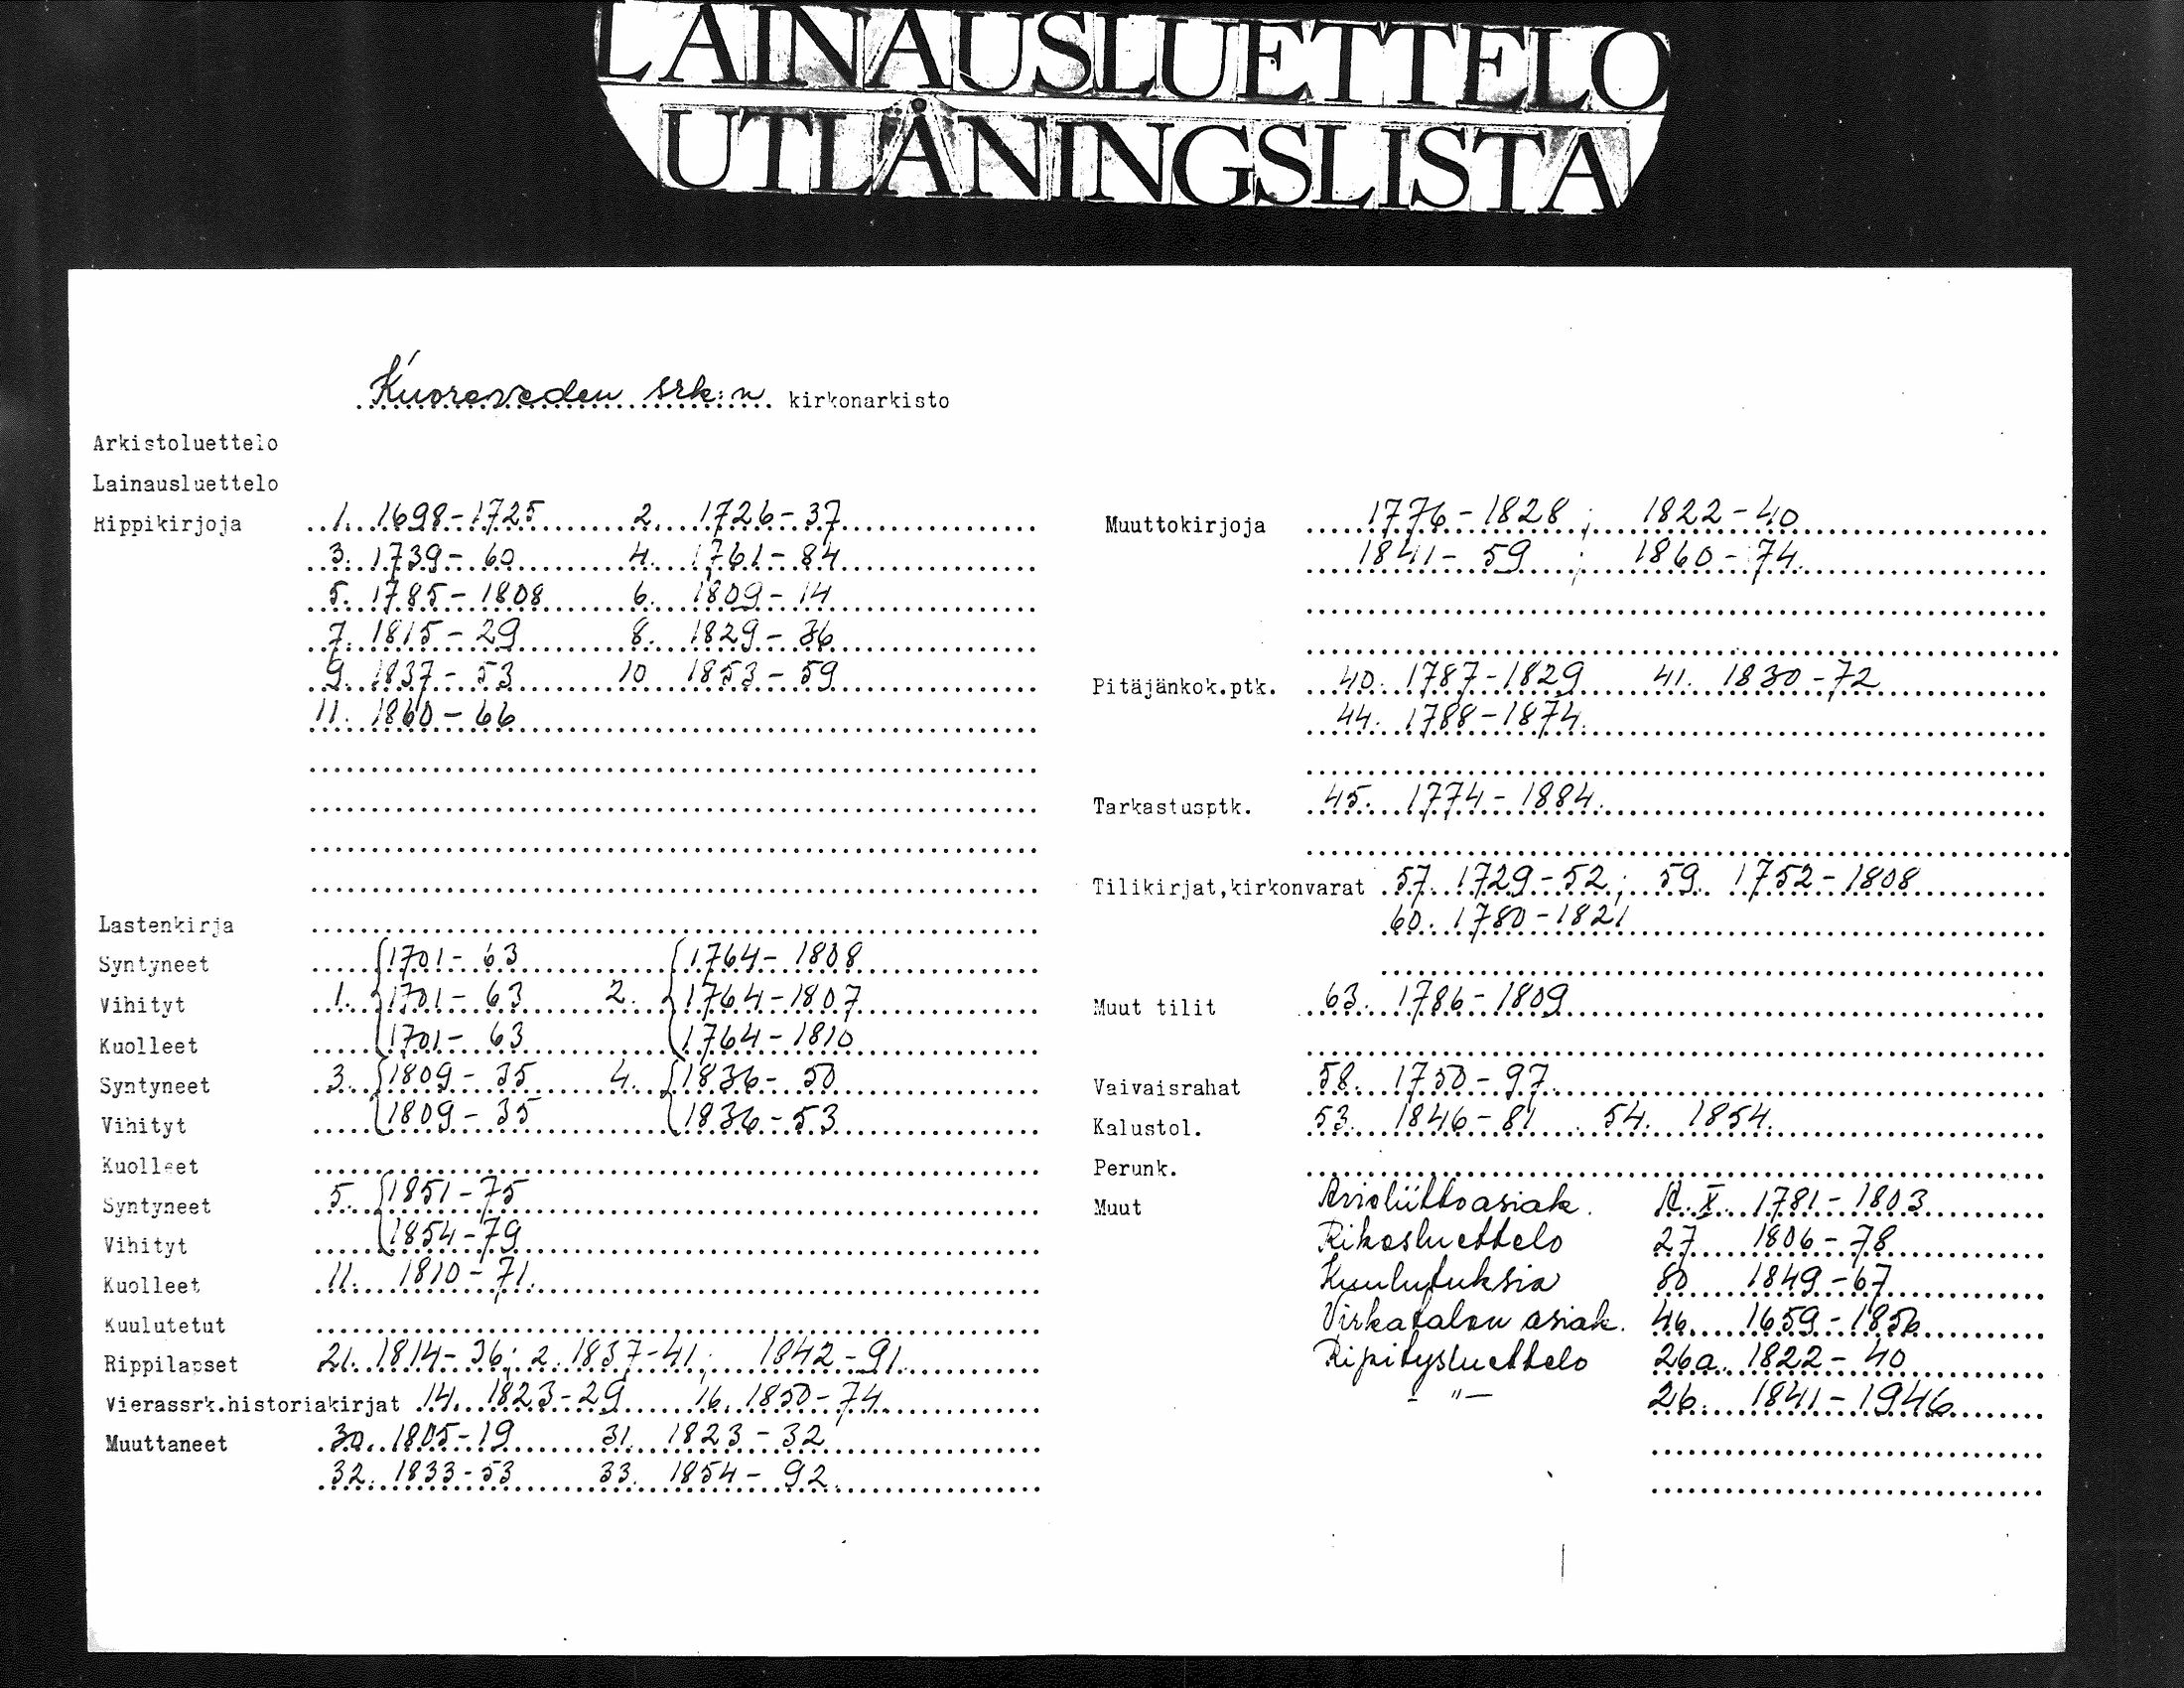 LAINAUSLUETTELO
UTLÅNINGSLISTA
Kuoreveden srk:n kirkonarkisto
Arkistoluettelo
Lainausluettelo
Rippikirjoja 1. 1698-1725 2. 1726-37
3. 1739-60 4. 1761-84
5. 1785-1808 6. 1809-14
7. 1815-29 8. 1829-36
9. 1837-53 10 1853-59
11. 1860-66
Lastenkirja
Syntyneet 1701-63 1764-1808
Vihityt 1. 1701-63 2. 1764-1807
Kuolleet 1701-63 1764-1810
Syntyneet 3. 1809-35 4. 1836-50
Vihityt 1809-35 1836-53
Kuolleet
Syntyneet 5. 1851-75
Vihityt 1854-79
Kuolleet 11. 1810-71.
Kuulutetut
Rippilapset 21. 1814-36; 2. 1837-41; 1842-91.
Vierassrk.historiakirjat 14. 1823-29 16. 1850-74
Muuttaneet 30. 1805-19 31. 1823-32
32. 1833-53 33. 1854-92.
Muuttokirjoja 1776-1828; 1822-40
1841-59; 1860-74.
Pitäjänkok.ptk. 40. 1787-1829 41. 1830-72
44. 1788-1874.
Tarkastusptk. 45. 1774-1884.
Tilikirjat,kirkonvarat 57. 1729-52; 59. 1752-1808
60. 1780-1821
Muut tilit 63. 1786-1809
Vaivaisrahat 58. 1750-97.
Kalustol. 53. 1846-81 54. 1854.
Perunk.
Muut Avioliittoasiak. X. 1781-1803
Rikosluettelo 27 1806-78
Kuulutuksia 80 1849-67
Virkatalon asiak. 46. 1659-1856
Ripitysluettelo 26a. 1822-40
- " - 26. 1841-1946